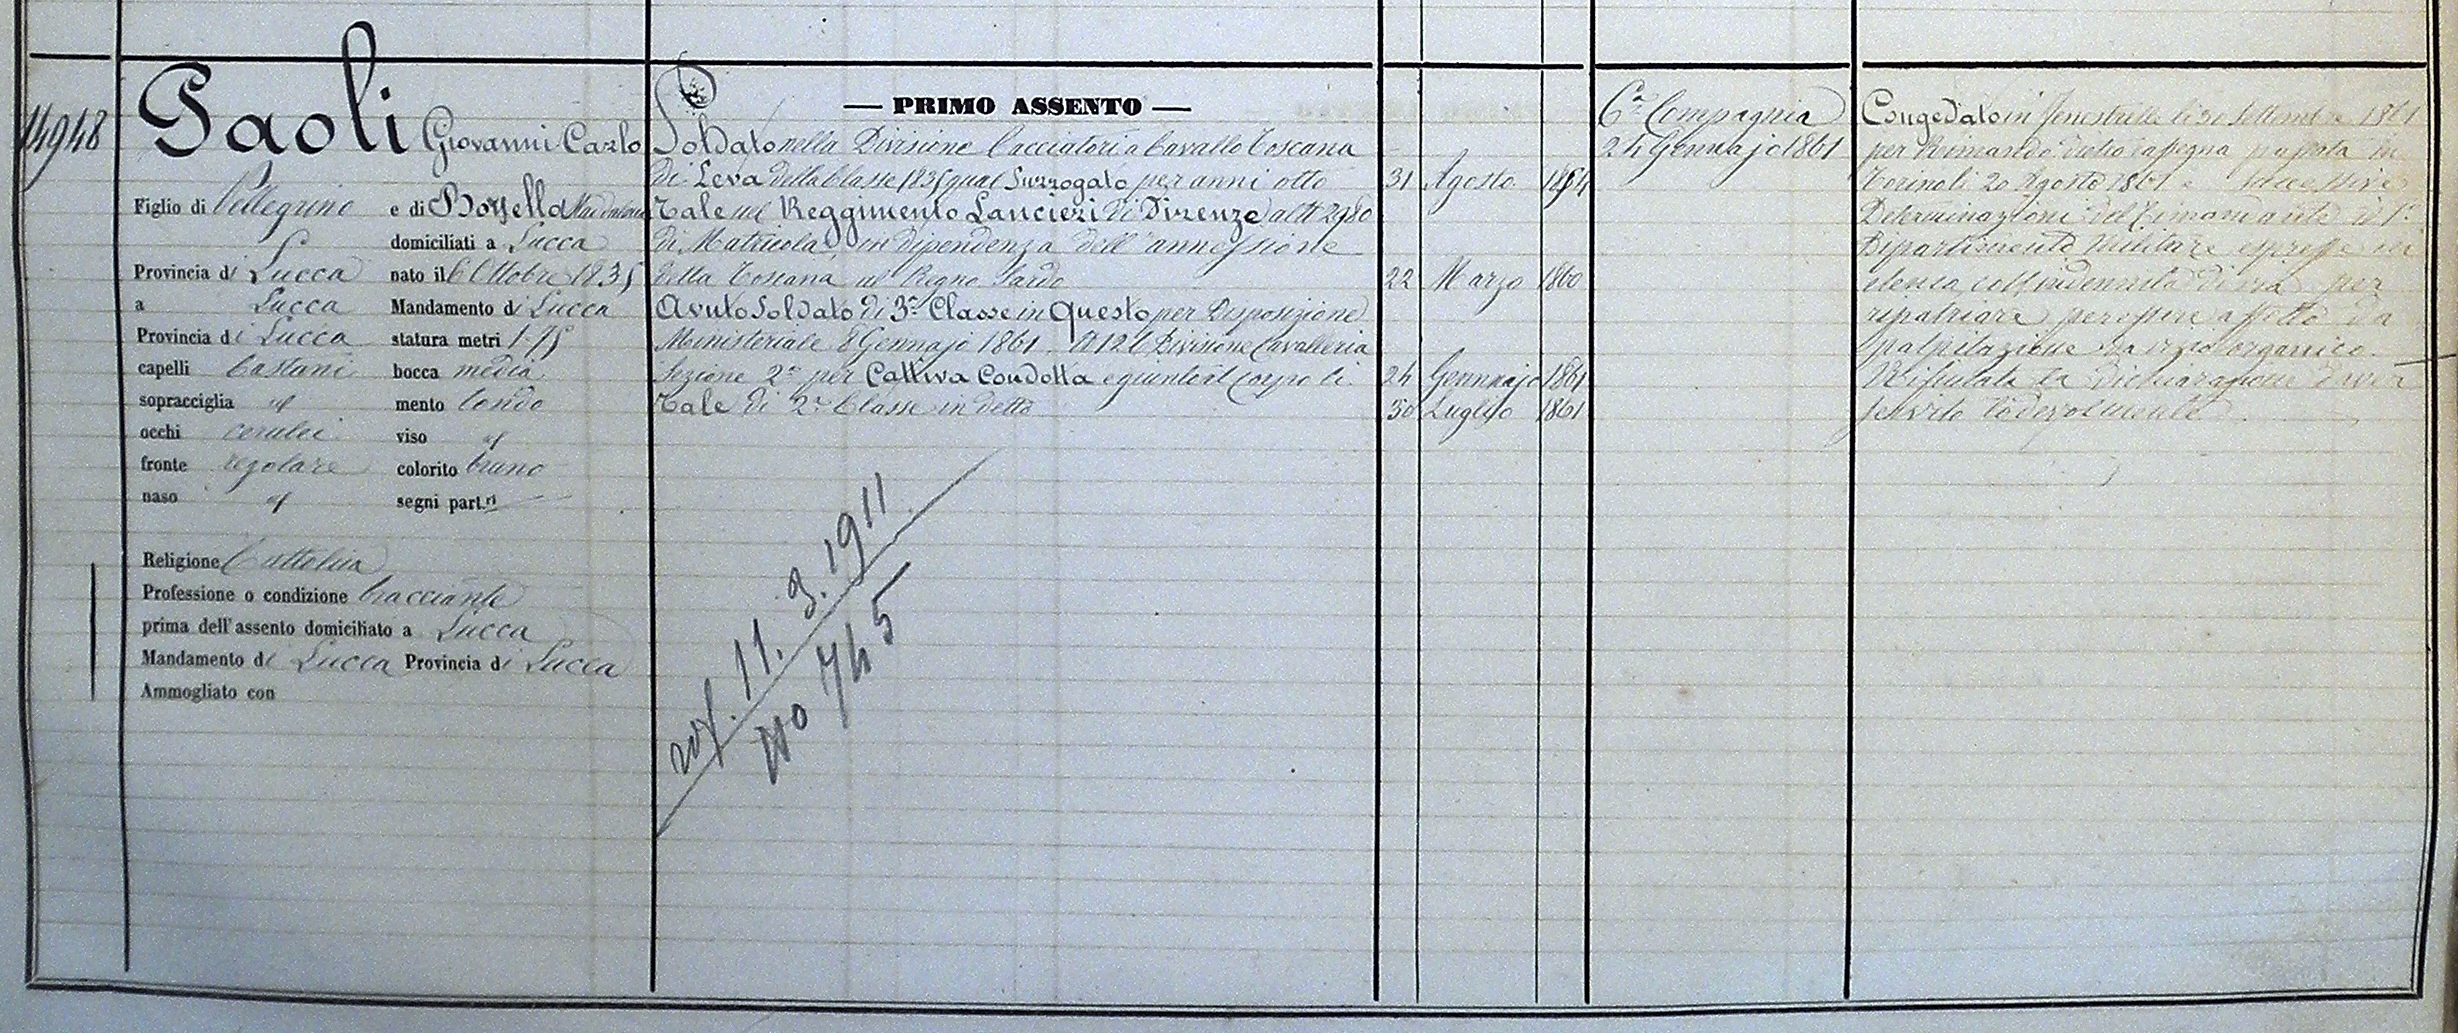 14948
Paoli Giovanni Carlo
Figlio di Pellegrino e di Borsella Maddalena
domiciliati a Lucca
Provincia di Lucca nato il 6 Ottobre 1835
a Lucca Mandamento di Lucca
Provincia di Lucca statura metri 1.75
capelli Castani bocca media
sopracciglia id mento tondo
occhi cerulei viso id
fronte regolare colorito bruno
naso id segni part.ri
Religione Cattolica
Professione o condizione bracciante
prima dell'assento domiciliato a Lucca
Mandamento di Lucca Provincia di Lucca
Ammogliato con
— PRIMO ASSENTO —
Soldato nella Divisione Cacciatori a Cavallo Toscana
di Leva della Classe 1835 qual Surrogato per anni otto 31 Agosto 1854
Tale nel Reggimento Lancieri di Firenze al N 2980
di Matricola in dipendenza dell'annessione
della Toscana al Regno Sardo 22 Marzo 1860
Avuto Soldato di 3a Classe in Questo per Disposizione
Ministeriale 8 Gennajo 1861 N 121 Divisione Cavalleria
Sezione 2a per Cattiva Condotta e giunto al corpo li 24 Gennajo 1861
Tale di 2a Classe in detto 30 Luglio 1861
11. 3. 1911
No 745
6a Compagnia
24 Gennajo 1861
Congedato in Fenestrelle li 30 Settembre 1861
per Rimando dietro rassegna passata in
Torino li 20 Agosto 1861 e successive
Determinazioni del Comandante il 1o
Dipartimento Militare espresse in
elenco coll'indennità di via per
ripatriare per essere affetto da
palpitazione da vizio organico.
Rifiutata la dichiarazione d'aver
servito lodevolmente